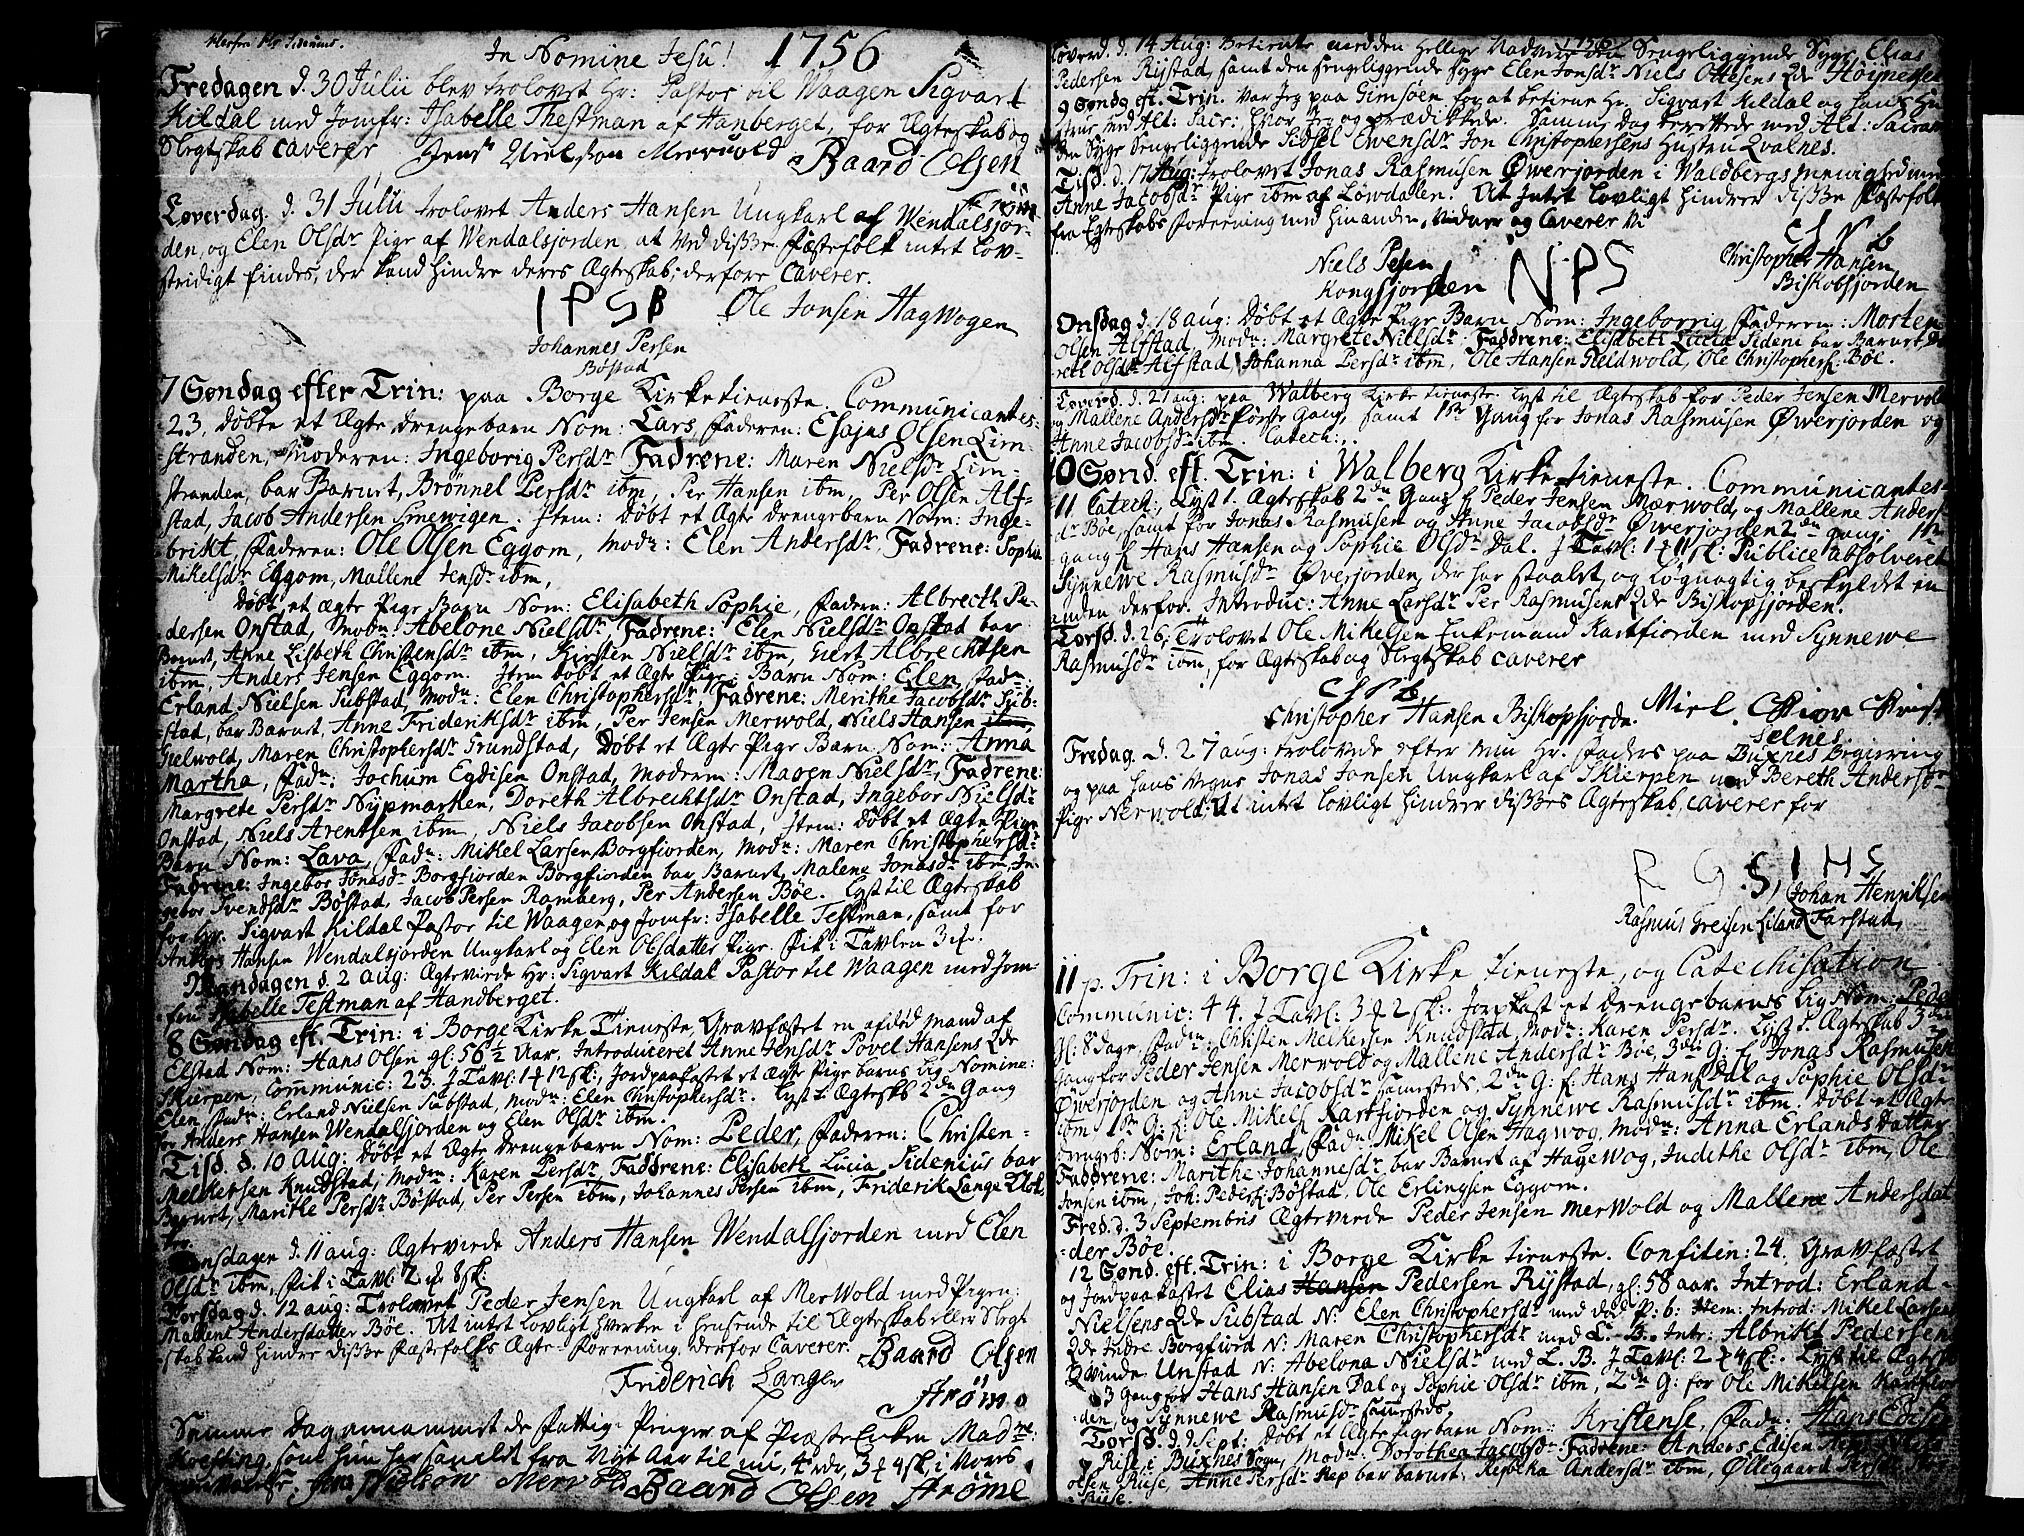 Herfra Hr Sidenius.
In Nomine Jesu! 1756
Fredagen d. 30 Julii blev trolovet Hr: Pastor til Waagen Sigvart
Kildal med Jomfr: Isabelle Thestman af Hanberget, for Ægteskab og
Slegtskab caverer Jens Nielsson Merwold Baard Olsen
Ström
Løverdag d. 31 Julii trolovet Anders Hansen Ungkarl af Wendalsjor-
den, og Elen Olsdr Pige af Wendalsjorden, at Ved disse Fæstefolk intet Lov-
stridigt findes, der kand hindre deres Ægteskab, derfore Caverer.
I P S B Ole Jonsen HagWogen
Johannes Persen
Böstad
7 Søndag efter Trin: paa Borge Kirketieneste. Communicantes:
23, døbte et Ægte drengebarn Nom: Lars, Faderen: Esajas Olsen Lim-
stranden, Moderen: Ingeborig Persdr Fadrene: Maren Nielsdr Lim-
stranden, bar Barnet, Brønnel Persdr ibm, Per Hansen ibm, Per Olsen Alf-
stad, Jacob Andersen Smewigen. Item: døbt et Ægte drengebarn Nom: Inge-
brikt, Faderen: Ole Olsen Eggom, Modn: Elen Andersdr, Fadrene: Sophie
Mikelsdr Eggom, Mallene Jensdr ibm,
Døbt et ægte Pige Barn Nom: Elisabeth Sophie, Faderen: Albrecth Pe-
dersen Onstad, Modn: Abelone Nielsdr, Fadrene: Elen Nielsdr Onstad bar
Barnet, Anne Lisbeth Christensdr ibm, Kirsten Nielsdr ibm, Giert Albrechtsen
ibm, Anders Jensen Eggom. Item døbt et Ægte Pige Barn Nom: Elen, Fadn:
Erland Nielsen Substad, Modn: Elen Christophersdr, Fadrene: Merithe Jacobsdr Sub-
stad, bar Barnet, Anne Frideriksdr ibm, Per Jensen Merwold, Niels Hansen ibm,
Gielwold, Maren Christophersdr Grundstad, Døbt et Ægte Pige Barn Nom: Anna
Martha, Fadn: Jochum Egdisen Onstad, Moderen: Maren Nielsdr, Fadrene:
Margrete Persdr Nypmarken, Doreth Albrechtsdr Onstad, Ingebor Nielsdr
Onstad, Niels Arentsen ibm, Niels Jacobsen Onstad, Item: døbt et Ægte Pige
Barn Nom: Lava, Fadn: Mikel Larsen Borgfiorden, Modn: Maren Christophersdr
Fadrene: Ingebor Jonasdr Borgfiorden Borgfiorden bar Barnet, Malene Jonasdr ibm, In-
gebor Svendsdr Böstad, Jacob Persen Ramberg, Per Andersen Böe. Lyst til Ægteskab
for Hr. Sigvart Kildal Pastor til Waagen og Jomfr: Isabelle Testman, samt for
Anders Hansen Wendalsjorden Ungkarl og Elen Olsdatter Pige. Fik i Tavlen
Mandagen d. 2 Aug: Ægtevirde Hr: Sigvart Kildal Pastor til Waagen med Jom-
fru Isabelle Testman af Handberget.
8 Søndag eft. Trin: i Borge Kirke Tieneste, Gravfæstet en afdød Mand af
Elstad Nom: Hans Olsen gl: 56½ Aar, Introduceret Anne Jensdr Povel Hansens Qde
Skierpen, Communic: 23. I Tavl: 1 # 12 sk:, Jordpaakastet et Ægte Pige barns Lig Nomine:
Elen Fadn: Erland Nielsen Substad, Modn: Elen Christophersdr. Lyst t. Ægtesk 2den Gang
for Anders Hansen Wendalsjorden og Elen Olsdr ibm.
Tisd. d. 10 Aug: døbt et Ægte drengebarn Nom: Peder, Faderen: Christen-
Melkersen Knudstad, Modn: Karen Persdr. Faddrene: Elisabeth Lucia Sidenius bar
Barnet, Marithe Persdr Böstad, Per Persen ibm, Johannes Persen ibm, Friderik Lange Klok
ker.
Onsdagen d. 11 Aug: Ægtevirde Anders Hansen Wendalsjorden med Elen
Olsdr ibm, Fik i Tavl: 2 # 8 sk:
Torsdag d. 12 Aug: Trolovet Peder Jensen Ungkarl af MerWold med Pigen:
Mallene Andersdatter Böe. At intet lovligt hverken i henseende til Ægteskab eller Slegt
skab kand hindre disse Fæstefolks Ægte-Foreening, derfor Caverer. Baard Olsen
Friderich Langen Ström
Samme dag annammet de Fattig Penger af Præste Enken Madme:
Hoefting, som hun har samlet fra Nyt Aar til nu, 4 rdr, 3 # 4 sk, i Vores
Jens Nielson Merwold Baard Olsen Ström
Løverd. d. 14 Aug: Betiente med den hellige Nadvere 1756 Sengeliggende Syge Elias
Pedersen Rijstad, samt den sengeliggende syge Elen Jonsdr Niels Ottesens Qde Höynesse
9 Søndg eft. Trin. Var Jeg paa Gimsöen for at betiene Hr. Sigvart Kildal og hans Hu
strue med Alt: Sacr:, hvor Jeg og prædikede. Samme Dag berettede med Alt: Sacram
den Syge Sengeliggende Sidsel Ewensdr Jon Christophersens Hustru Qvalnes.
Tisd. d. 17 Aug: trolovet Jonas Rasmusen Øwerjorden i Waldbergs menighed med
Anne Jacobsdr Pige ibm af Lövdalen. At Intet Lovligt hindrer disse Fæstefolk
fra Egteskabs Foreening med hinanden, Vidner og Caverer Vi
C H S B
Niels Pesen N P S Christopher Hansen
Kongsjorden Biskobsjorden
Onsdag d. 18 Aug: Døbt et Ægte Pige Barn Nom: Ingeborrig Faderen: Morten
Olsen Alfstad, Modn: Margrete Nielsdr, Faddrene: Elisabeth Lucia Sideni bar Barnet, Do
reth Olsdr Alfstad, Johanna Persdr ibm, Ole Hansen Gieldwold, Ole Christophers: Böe.
Løverd. d. 21 Aug: paa Walberg Kirke tieneste. Lyst til Ægteskab for Peder Jensen Merwold
og Mallene Andersdr Første Gang, samt 1ste Gang for Jonas Rasmusen Øwerjorden og
Anne Jacobsdr ibm. Catech:
10 Sønd. eft. Trin: i Walberg Kirke tieneste. Communicantes
11 Catech, Lyst t. Ægteskab 2den Gang f. Peder Jensen Mærwold, og Mallene Anders
dr Böe, samt for Jonas Rasmusen og Anne Jacobsdr Øwerjorden 2den gang, 1ste
gang f. Hans Hansen og Sophie Olsdr Dal. I Tavl: 1 # 11 sk: Publice absolveret
Synnewe Rasmusdr Øverjorden, der har staalet, og løgnagtig beskyldet en
anden derfor. Introduc: Anne Larsdr Per Rasmusens Qde Biskopsjorden.
Torsd. d. 26, Trolovet Ole Mikelsen Enkemand Kartfiorden med Synnewe
Rasmusdr ibm, for Ægteskab og Slegtskab caverer
C H S B
Christopher Hansen Biskopsjorde.
Selnes.
Fredag d. 27 Aug: trolovede efter min Hr. Faders paa Buxnes Begiering
og paa hans Vegne Jonas Jonsen Ungkarl af Skierpen med Bereth Andersdr
Pige Nerwold, At intet lovligt hindrer disses Ægteskab, caverer for
R G S, I H S
Johan Henriksen
Rasmus Greisen Liland Farstad,
11 p. Trin: i Borge Kirke tieneste, og Catechisation
Communic: 44. I Tavl: 3 # 2 sk:. Jordkast et drengebarnes Lig Nom, Peder
gl: 8 dage, Fadn: Christen Melkersen Knudstad, Modn: Karen Persdr. Lyst t. Ægteskab 3die
Gang for Peder Jensen Merwold og Mallene Andersdr Böe, 3die G: f. Jonas Rasmusen
Øwerjorden og Anne Jacobsdr sammesteds, 2den G: f: Hans Hans: Dal og Sophie Olsdr
ibm 1ste G: f: Ole Mikels Kartfiorden og Synnewe Rasmusdr ibm. Døbt et Ægte
drengeb: Nom: Erland, Fadn: Mikel Olsen Hagwog, Modn: Anna Erlands Datter
Faddrene: Marithe Johannesdr bar Barnet af HageWog, Judithe Olsdr ibm, Ole
Jonsen ibm, Joh: Peders: Böstad, Ole Erlingsen Eggom.
Fred. d. 3 Septembris Ægtevirde Peder Jensen MerWold og Mallene Andersdat
der Böe.
12 Sønd. eft. Trin: i Borge Kirke tieneste. Confiten: 24. Gravfæstet
og Jordpaakastet Elias Hansen Pedersen Rijstad, gl: 58 aar. Introd: Erland
Nielsens Qde Substad N: Elen Christophersdr med død P: b: Item: Introd: Mikel Larsens
Qde Indre Borgfiord N: Maren Christophersdr med L. B. Intr: Albrikt Pedersens
Qvinde Unstad N: Abelona Nielsdr med L. B. I Tavl: 2 # 4 sk:. Lyst til Ægtesk
3 gang for Hans Hansen Dal og Sophie Olsdr ibm, 2den G: for Ole Mikelsen Kartfior
den, og Synnewe Rasmusdr sammesteds.
Torsd. d. 9 Sept: Døbt et Ægte Pigebarn Nom: Kristense, Fadn: Hans Edisen
Rise i Buxnes Sogn, Modn: Dorothea Jacobsdr. Fadrene: Anders Edisen
Olsen Riise, Anne Persdr Rep bar barnet, Rebekka Andersdr ibm, Öllegaard Persdr
Riise.